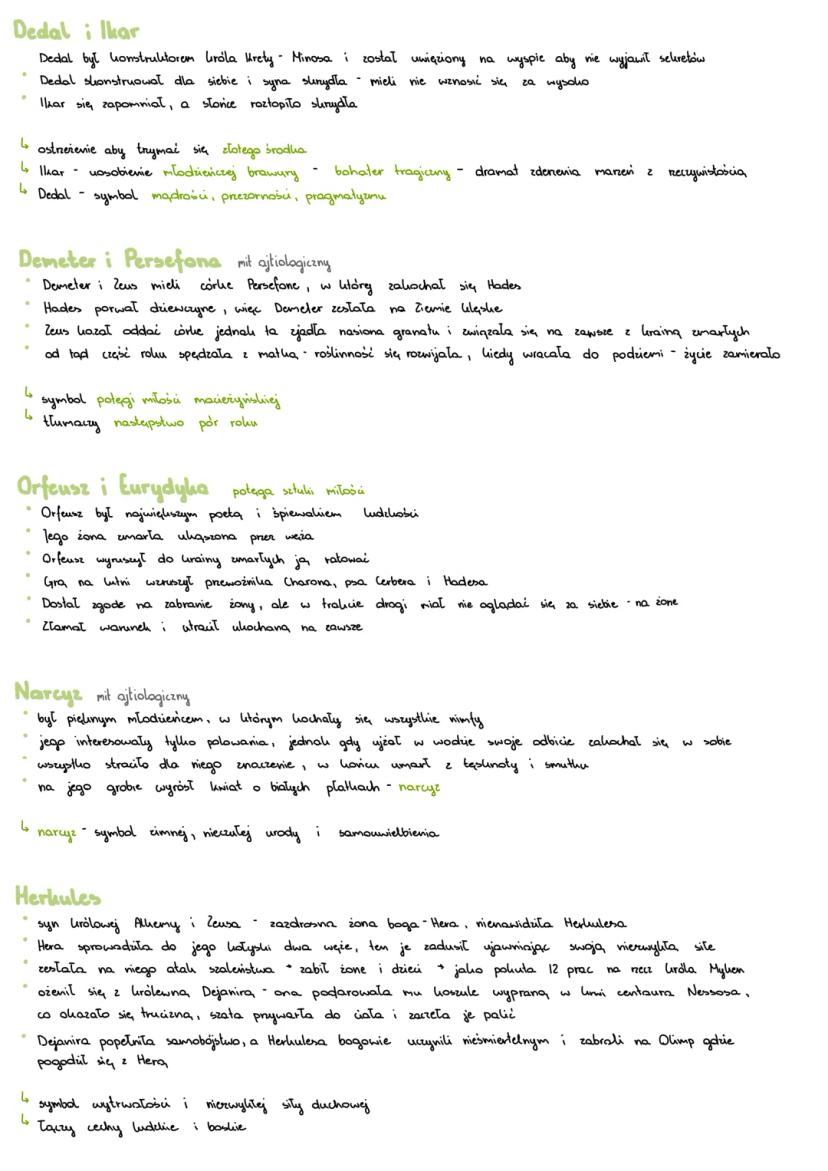 Dedal i Ikar
Dedal był konstruktorem króla Krety - Minosa i został uwięziony na wyspie aby nie wyjawił sekretów
• Dedal skonstruował dla siebie i syna skrzydła - mieli nie wznosić się za wysoko
• Ikar się zapomniał, a słońce roztopiło skrzydła
↳ ostrzeżenie aby trzymać się złotego środka
↳ Ikar - uosobienie młodzieńczej brawury - bohater tragiczny - dramat zderzenia marzeń z rzeczywistością
↳ Dedal - symbol mądrości, przezorności, pragmatyzmu
Demeter i Persefona mit ajtiologiczny
• Demeter i Zeus mieli córkę Persefonę, w której zakochał się Hades
• Hades porwał dziewczynę, więc Demeter zesłała na Ziemię klęskę
• Zeus kazał oddać córkę jednak ta zjadła nasiona granatu i związała się na zawsze z krainą zmarłych
• od tąd część roku spędzała z matką - roślinność się rozwijała, kiedy wracała do podziemi - życie zamierało
↳ symbol potęgi miłości macierzyńskiej
↳ tłumaczy następstwo pór roku
Orfeusz i Eurydyka potęga sztuki miłości
• Orfeusz był największym poetą i śpiewakiem ludzkości
• Jego żona zmarła ukąszona przez węża
• Orfeusz wyruszył do krainy zmarłych ją ratować
• Grą na lutni wzruszył przewoźnika Charona, psa Cerbera i Hadesa
• Dostał zgodę na zabranie żony, ale w trakcie drogi miał nie oglądać się za siebie - na żonę
• Złamał warunek i utracił ukochaną na zawsze
Narcyz mit ajtiologiczny
• był pięknym młodzieńcem, w którym kochały się wszystkie nimfy
• jego interesowały tylko polowania, jednak gdy ujżał w wodzie swoje odbicie zakochał się w sobie
• wszystko straciło dla niego znaczenie, w końcu umarł z tęsknoty i smutku
• na jego grobie wyrósł kwiat o białych płatkach - narcyz
↳ narcyz - symbol zimnej, nieczułej urody i samouwielbienia
Herkules
• syn królowej Alkemy i Zeusa - zazdrosna żona boga - Hera, nienawidziła Herkulesa
• Hera sprowadziła do jego kołyski dwa węże, ten je zadusił ujawniając swoją niezwykłą siłę
• zesłała na niego atak szaleństwa → zabił żonę i dzieci → jako pokuta 12 prac na rzecz króla Myken
• ożenił się z królewną Dejanirą - ona podarowała mu koszulę wypraną w krwi centaura Nessosa,
co okazało się trucizną, szata przywarła do ciała i zaczęła je palić
• Dejanira popełniła samobójstwo, a Herkulesa bogowie uczynili nieśmiertelnym i zabrali na Olimp gdzie
pogodził się z Herą
↳ symbol wytrwałości i niezwykłej siły duchowej
↳ łączy cechy ludzkie i boskie